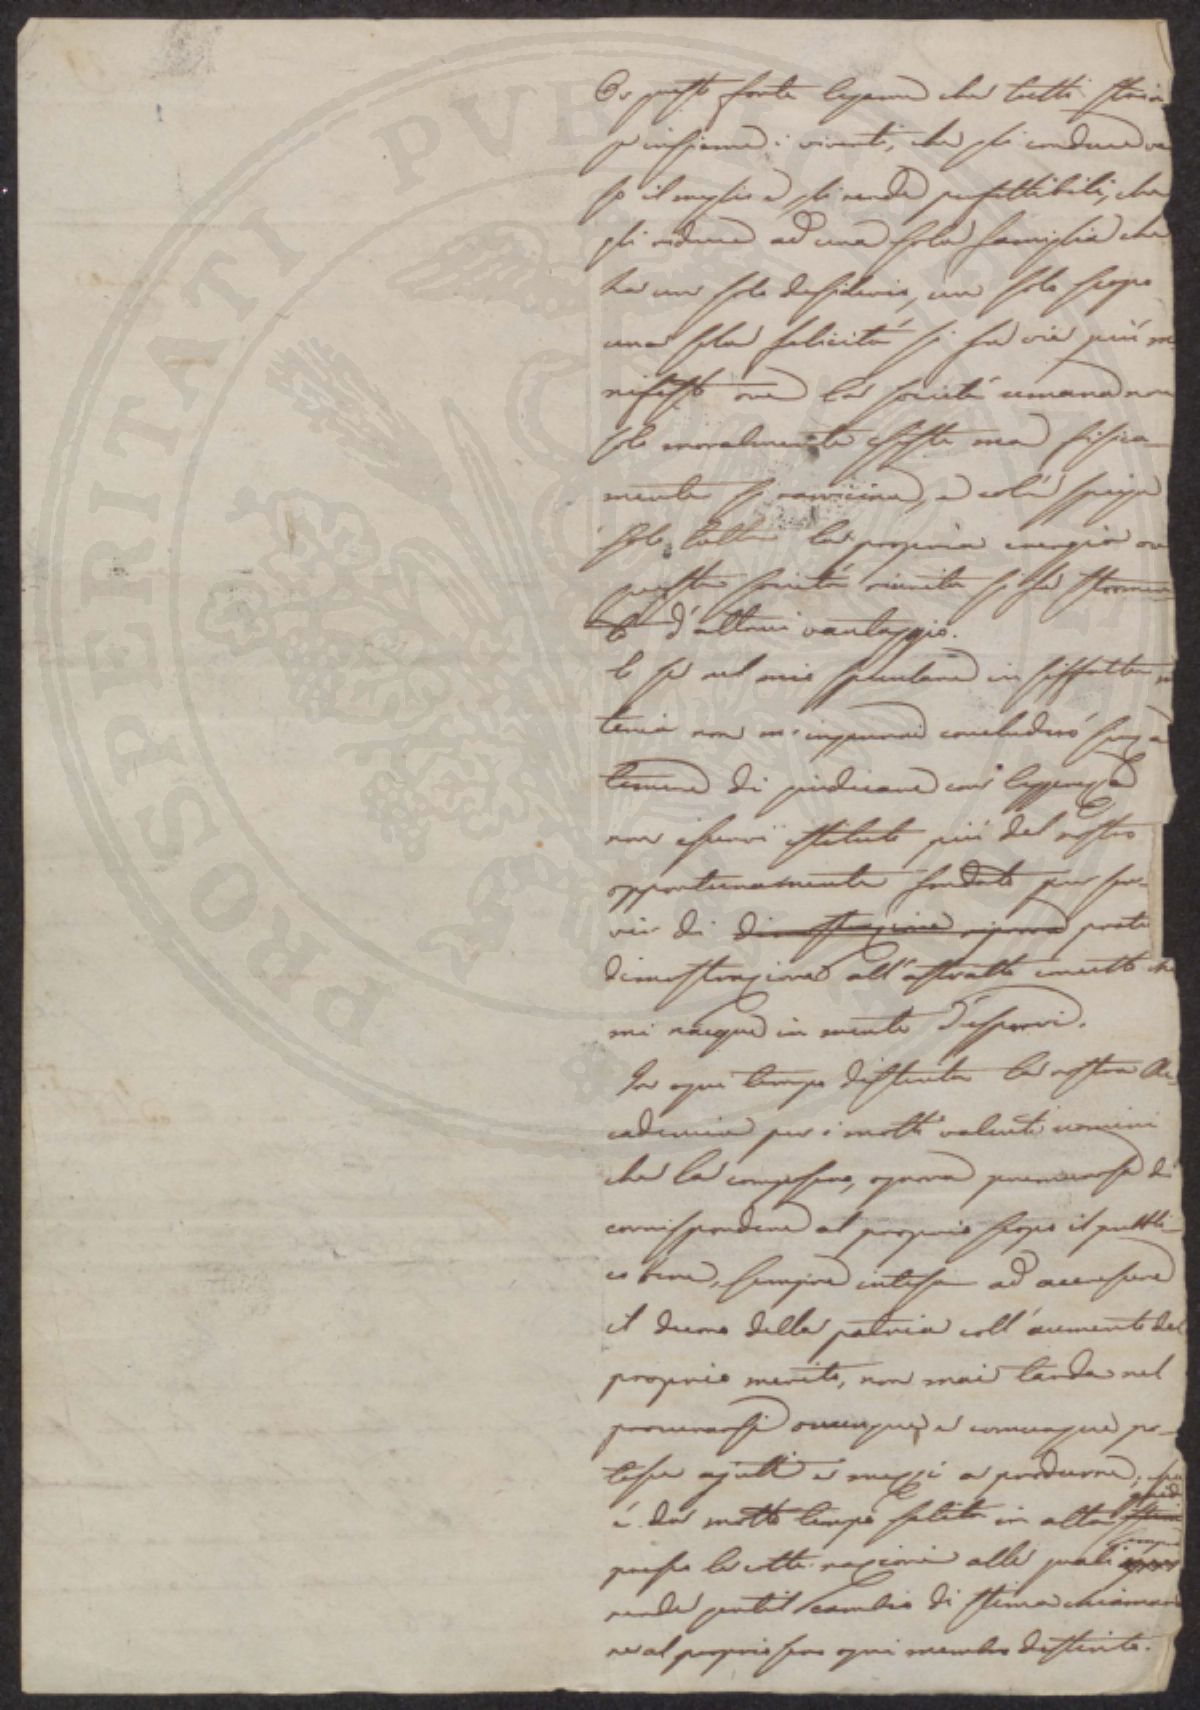 PROSPERITATI PUBLICAE
Or questo forte legame che tutti strin-
ge insieme i viventi, che gli conduce ve
so il meglio e gli rende perfettibili, che
gli riduce ad una sola famiglia che
ha un solo desiderio, un solo scopo
una sola felicità si fa vie più ma
nifesto ove la società umana non
solo moralmente esiste ma fisica-
mente si ravvicina, e colà spiega
tutta la propria energia ove
questa società riunita si fa stromen-
to d'altrui vantaggio.
E se nel mio speculare in siffatta ma
teria non m'ingannai concluderò senza
temere di giudicare con leggerezza
non esservi istituto più del nostro
opportunamente fondato per ser-
vir di dimostrazione prati
dimostrazione all'astratto concetto che
mi nacque in mente d'esporvi.
In ogni tempo distinta la nostra Ac-
cademia per i molti valenti uomini
che la composero, ognora premurosa di
corrispondere al proprio scopo il pubbli-
co bene, sempre intesa ad accrescere
il decoro della patria coll'aumento del
proprio merito, non mai tarda nel
procurarsi ovunque e comunque po-
tesse ajuti e mezzi a produrne,
è da molto tempo salita in alta
grido
presso le colte nazioni alle quali
sempre
rende gentil cambio di stima chiaman
ne al proprio seno ogni membro distinto.